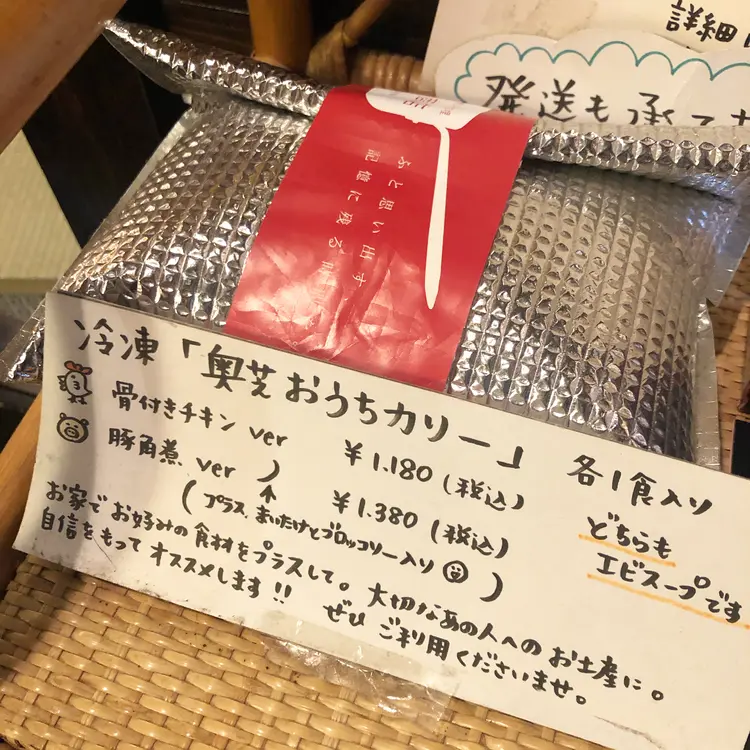 詳細
発送も承って
ふと思い出す
記憶に残る
冷凍「奥芝おうちカリー」 各1食入り
骨付きチキン ver ¥1.180(税込)
豚角煮 ver ¥1.380(税込)
(プラス、まいたけとブロッコリー入り)
どちらも
エビスープです
お家でお好みの食材をプラスして。大切なあの人へのお土産に。
自信をもってオススメします!! ぜひご利用くださいませ。